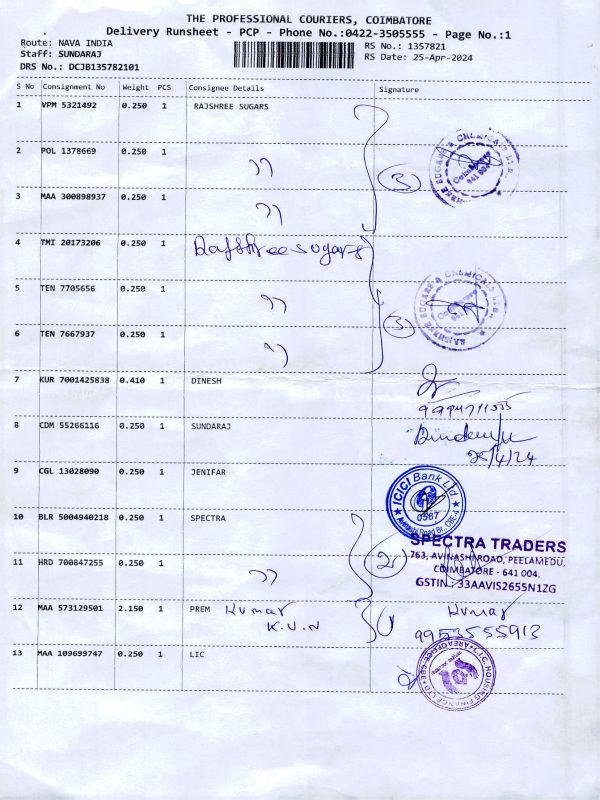 THE PROFESSIONAL COURIERS, COIMBATORE
Delivery Runsheet - PCP - Phone No.:0422-3505555 - Page No.:1
Route: NAVA INDIA
Staff: SUNDARAJ
DRS No.: DCJB135782101
RS No.: 1357821
RS Date: 25-Apr-2024
S No Consignment No Weight PCS Consignee Details Signature
1 VPM 5321492 0.250 1 RAJSHREE SUGARS
2 POL 1378669 0.250 1 ,,
3 MAA 300898937 0.250 1 ,,
(3)
4 TMI 20173206 0.250 1 Rajshree sugars
5 TEN 7705656 0.250 1 ,,
6 TEN 7667937 0.250 1 ,,
(3)
7 KUR 7001425838 0.410 1 DINESH
8 CDM 55266116 0.250 1 SUNDARAJ
25/4/24
9 CGL 13028090 0.250 1 JENIFAR
ICICI Bank Ltd.
0567
Avinashi Road Br., CBE-4
10 BLR 5004940218 0.250 1 SPECTRA
SPECTRA TRADERS
763, AVINASHI ROAD, PEELAMEDU,
COIMBATORE - 641 004.
GSTIN : 33AAVIS2655N1ZG
11 HRD 700847255 0.250 1 ,,
(2)
12 MAA 573129501 2.150 1 PREM Kumar
K.V.N
Kumar
9953555913
13 MAA 109699747 0.250 1 LIC
L.I.C. HOUSING FINANCE LTD
AREA OFFICE-CBE